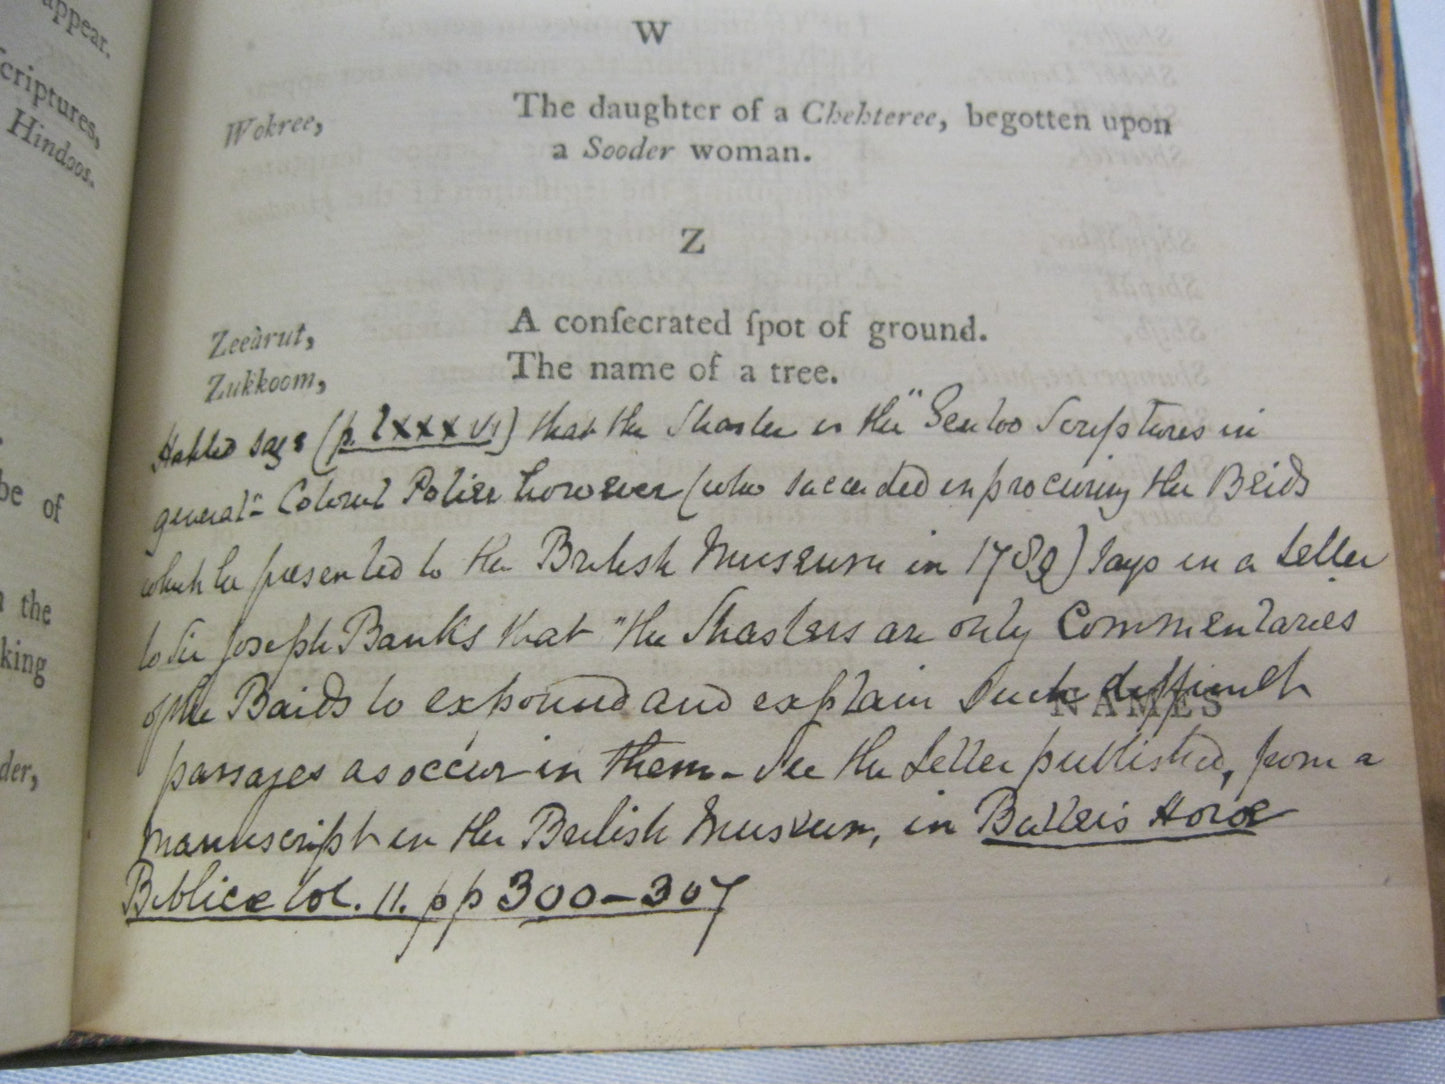 appear.
criptures,
Hindoos.
be of
the
king
der,
W
Wokree, The daughter of a Chehteree, begotten upon
a Sooder woman.
Z
Zeeàrut, A conſecrated ſpot of ground.
Zukkoom, The name of a tree.
Halhed says (p. lxxxvi) that the Shaster is the "Gentoo Scriptures in
general" - Colonel Polier however (who succeeded in procuring the Beids
which he presented to the British Museum in 1789) says in a Letter
to Sir Joseph Banks that "the Shasters are only Commentaries
of the Baids to expound and explain such difficult
NAMES
passages as occur in them - See the Letter published, from a
manuscript in the British Museum, in Butler's Horæ
Biblicæ Vol. 11. pp 300-307